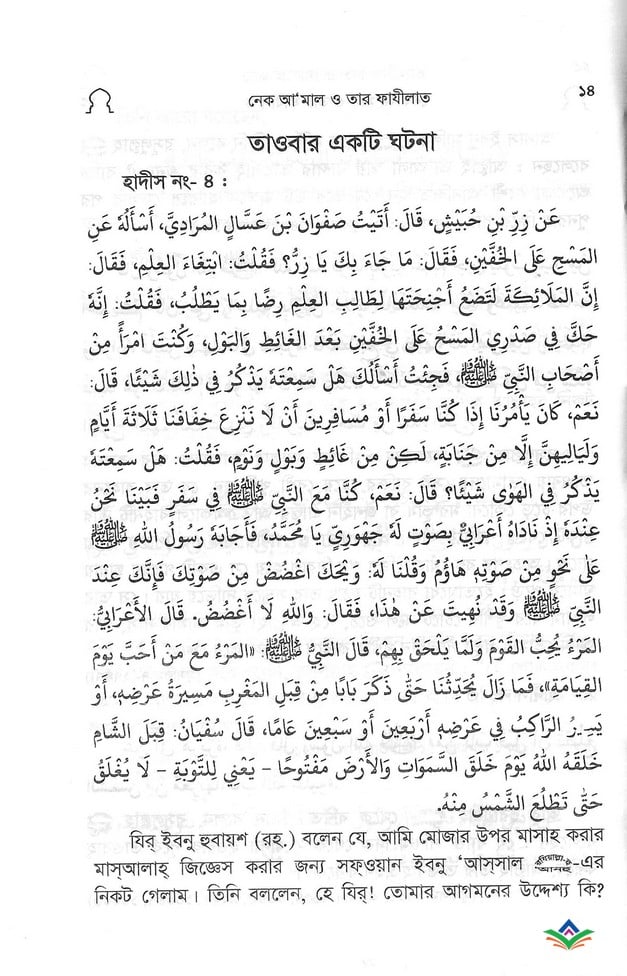 নেক আ'মাল ও তার ফাযীলাত
১৪
তাওবার একটি ঘটনা
হাদীস নং- ৪ :
عَنْ زِرِّ بْنِ حُبَيْشٍ، قَالَ: أَتَيْتُ صَفْوَانَ بْنَ عَسَّالٍ المُرَادِيَّ، أَسْأَلُهُ عَنِ
المَسْحِ عَلَى الخُفَّيْنِ، فَقَالَ: مَا جَاءَ بِكَ يَا زِرُّ؟ فَقُلْتُ: ابْتِغَاءَ العِلْمِ، فَقَالَ:
إِنَّ المَلَائِكَةَ لَتَضَعُ أَجْنِحَتَهَا لِطَالِبِ العِلْمِ رِضًا بِمَا يَطْلُبُ، فَقُلْتُ: إِنَّهُ
حَكَّ فِي صَدْرِي المَسْحُ عَلَى الخُفَّيْنِ بَعْدَ الغَائِطِ وَالبَوْلِ، وَكُنْتَ امْرَأً مِنْ
أَصْحَابِ النَّبِيِّ ﷺ، فَجِئْتُ أَسْأَلُكَ هَلْ سَمِعْتَهُ يَذْكُرُ فِي ذٰلِكَ شَيْئًا، قَالَ:
نَعَمْ، كَانَ يَأْمُرُنَا إِذَا كُنَّا سَفَرًا أَوْ مُسَافِرِينَ أَنْ لَا نَنْزِعَ خِفَافَنَا ثَلَاثَةَ أَيَّامٍ
وَلَيَالِيهِنَّ إِلَّا مِنْ جَنَابَةٍ، لَكِنْ مِنْ غَائِطٍ وَبَوْلٍ وَنَوْمٍ، فَقُلْتُ: هَلْ سَمِعْتَهُ
يَذْكُرُ فِي الهَوٰى شَيْئًا؟ قَالَ: نَعَمْ، كُنَّا مَعَ النَّبِيِّ ﷺ فِي سَفَرٍ فَبَيْنَا نَحْنُ
عِنْدَهُ إِذْ نَادَاهُ أَعْرَابِيٌّ بِصَوْتٍ لَهُ جَهْوَرِيٍّ يَا مُحَمَّدُ، فَأَجَابَهُ رَسُولُ اللهِ ﷺ
عَلٰى نَحْوٍ مِنْ صَوْتِهِ هَاؤُمُ وَقُلْنَا لَهُ: وَيْحَكَ اغْضُضْ مِنْ صَوْتِكَ فَإِنَّكَ عِنْدَ
النَّبِيِّ ﷺ وَقَدْ نُهِيتَ عَنْ هٰذَا، فَقَالَ: وَاللهِ لَا أَغْضُضُ. قَالَ الأَعْرَابِيُّ:
المَرْءُ يُحِبُّ القَوْمَ وَلَمَّا يَلْحَقْ بِهِمْ، قَالَ النَّبِيُّ ﷺ: «المَرْءُ مَعَ مَنْ أَحَبَّ يَوْمَ
القِيَامَةِ»، فَمَا زَالَ يُحَدِّثُنَا حَتّٰى ذَكَرَ بَابًا مِنْ قِبَلِ المَغْرِبِ مَسِيرَةُ عَرْضِهِ، أَوْ
يَسِيرُ الرَّاكِبُ فِي عَرْضِهِ أَرْبَعِينَ أَوْ سَبْعِينَ عَامًا، قَالَ سُفْيَانُ: قِبَلَ الشَّامِ
خَلَقَهُ اللهُ يَوْمَ خَلَقَ السَّمَوَاتِ وَالأَرْضَ مَفْتُوحًا - يَعْنِي لِلتَّوْبَةِ - لَا يُغْلَقُ
حَتّٰى تَطْلُعَ الشَّمْسُ مِنْهُ.
যির্ ইবনু হুবায়শ (রহ.) বলেন যে, আমি মোজার উপর মাসাহ করার
মাস্আলাহ্ জিজ্ঞেস করার জন্য সফ্ওয়ান ইবনু ‘আস্সাল -এর
নিকট গেলাম। তিনি বললেন, হে যির্! তোমার আগমনের উদ্দেশ্য কি?